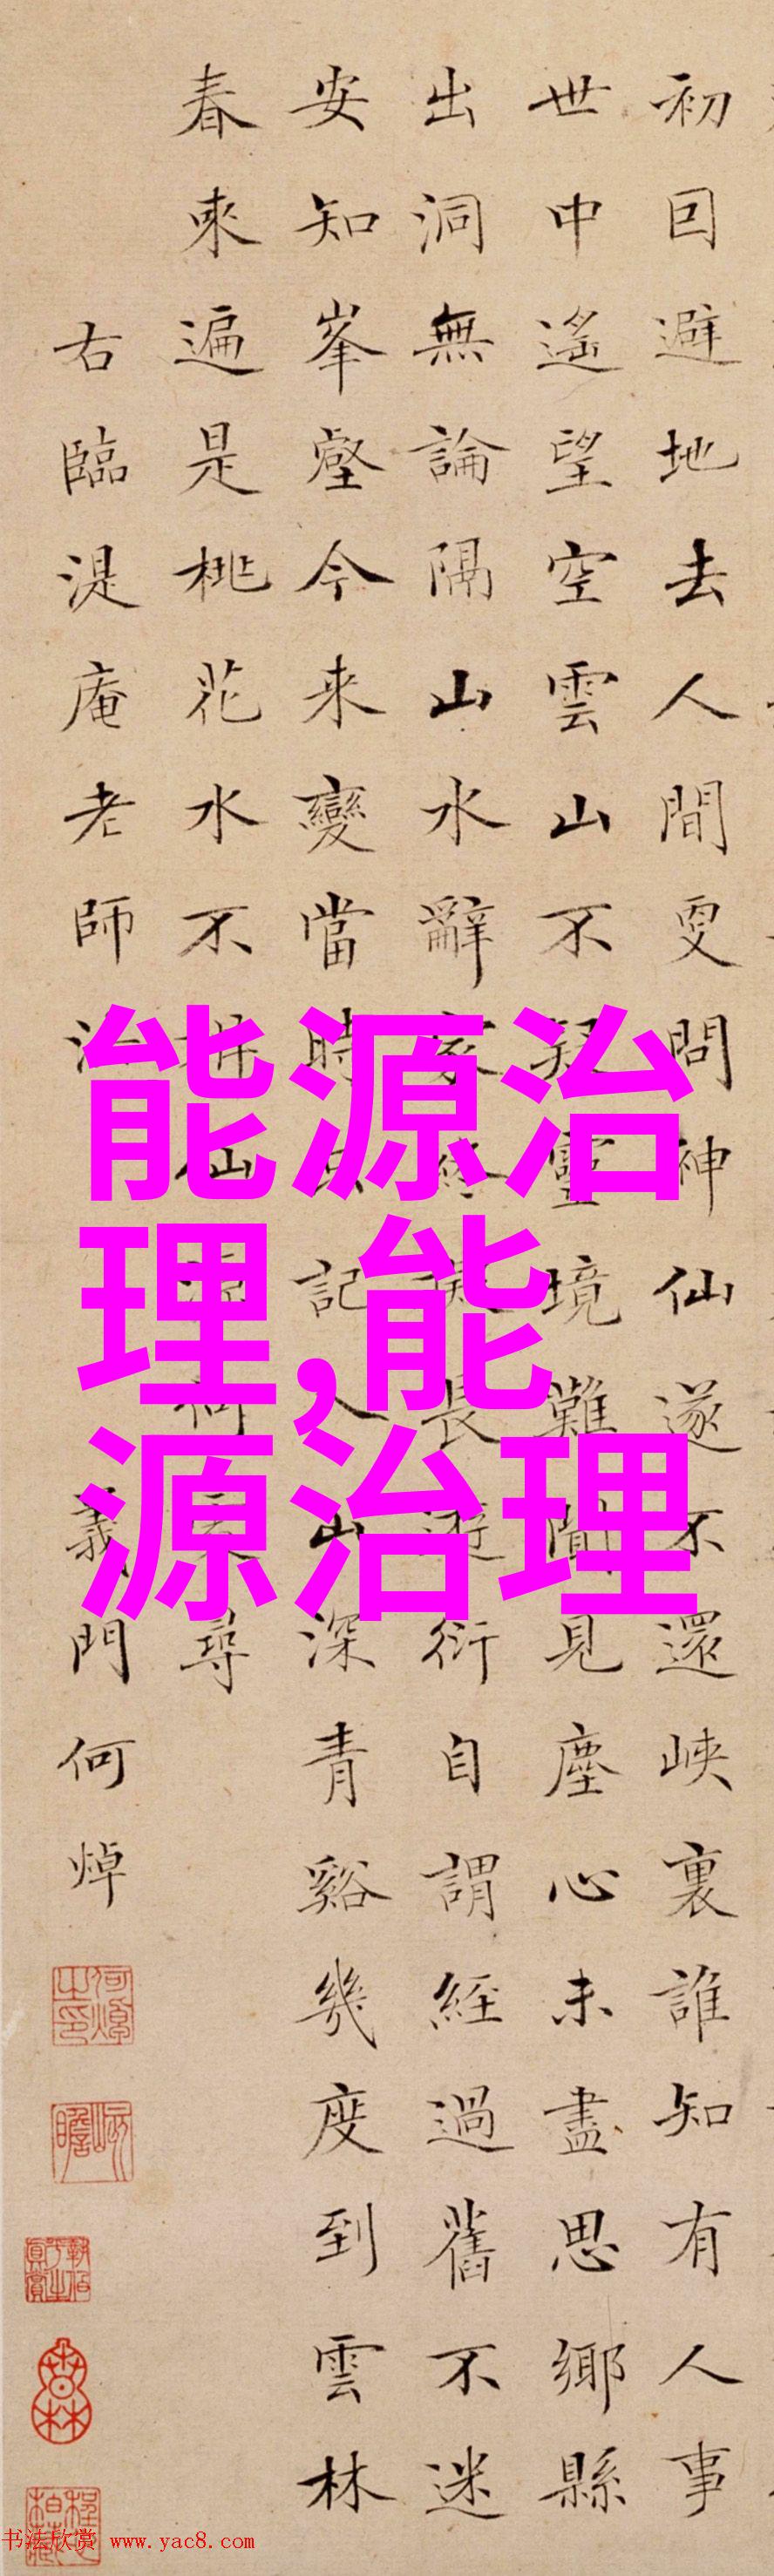 初回避地去人間更問神仙遂不還峽裏誰知有人事
世中遙望空雲山不疑靈境難聞見塵心未盡思鄉縣
出洞無論隔山水辭家終擬長遊衍自謂經過舊不迷
安知峯壑今来變當時只記入山深青谿幾度到雲林
春來遍是桃花水不辨仙源何處尋
右臨湜庵老師法 義門何焯
能源治
理,能
源治理
书法欣赏 www.yac8.com